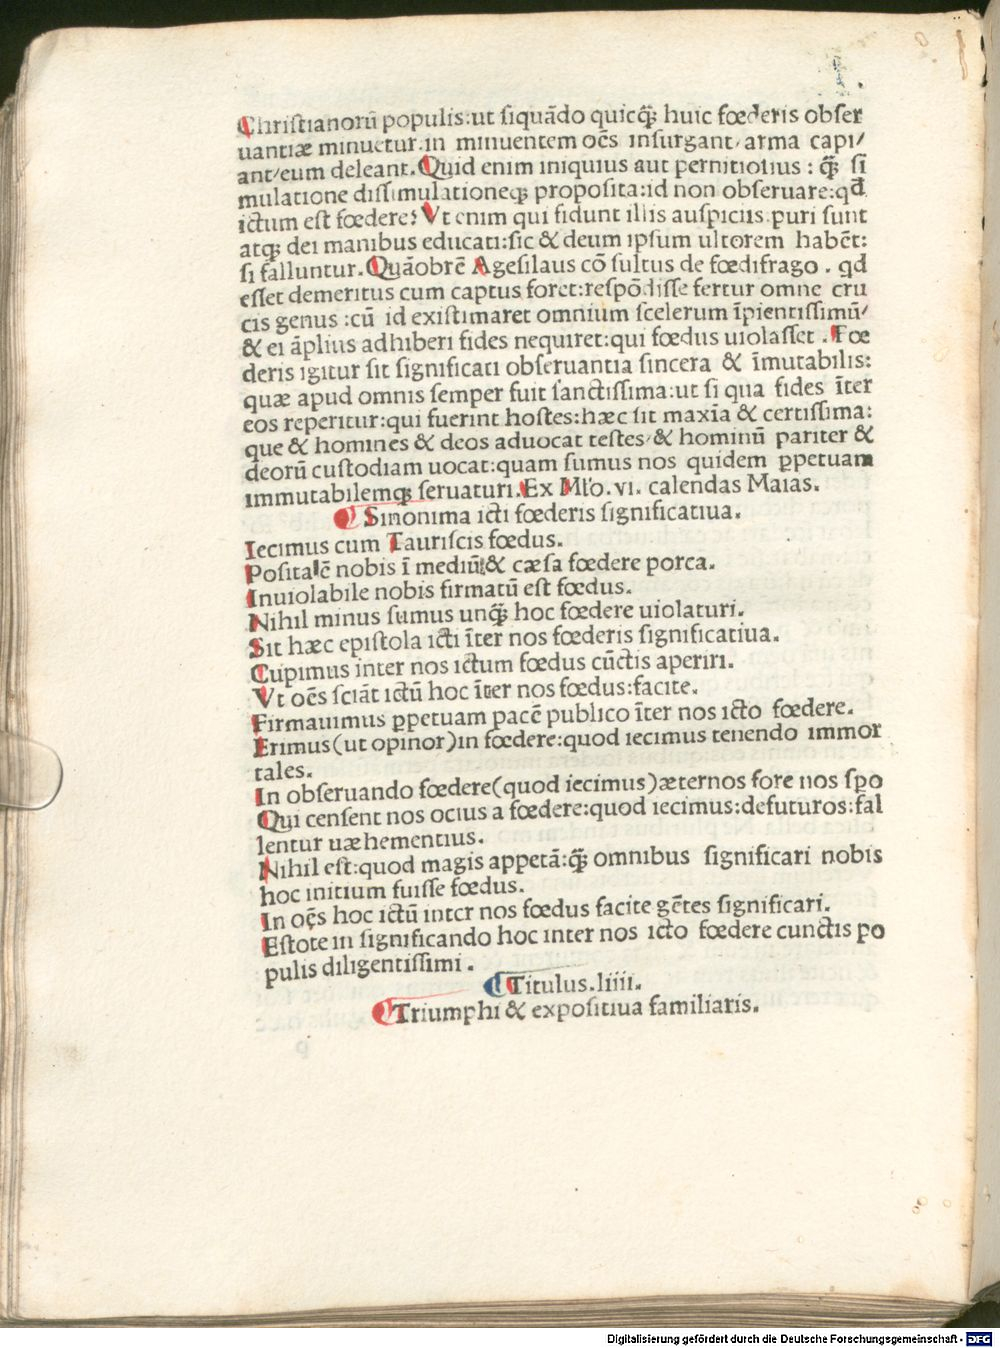 Christianorū populis:ut siquādo quicq̄ȝ huic fœderis obser
uantiæ minuetur.in minuentem oēs insurgant/arma capi/
ant/eum deleant.Quid enim iniquius aut pernitiosius : q̄ȝ si
mulatione dissimulationeqȝ proposita:id non obseruare:qđ
ictum est fœdere? Vt enim qui fidunt illis auspiciis puri sunt
atqȝ dei manibus educati:sic & deum ipsum ultorem habēt:
si falluntur.Quāobrē Agesilaus cōsultus de fœdifrago . qd
esset demeritus cum captus foret:respōdisse fertur omne cru
cis genus :cū id existimaret omnium scelerum īpientissimū/
& ei āplius adhiberi fides nequiret:qui fœdus uiolasset . Fœ
deris igitur sit significati obseruantia sincera & īmutabilis:
quæ apud omnis semper fuit sanctissima:ut si qua fides īter
eos reperitur:qui fuerint hostes:hæc sit maxīa & certissima:
que & homines & deos aduocat testes/& hominū pariter &
deorū custodiam uocat:quam sumus nos quidem ꝑpetuam
immutabilemqȝ seruaturi.Ex Mło.vi. calendas Maias.
Sinonima icti fœderis significatiua.
Iecimus cum Tauriscis fœdus.
Posita ē nobis ī mediū:& cæsa fœdere porca.
Inuiolabile nobis firmatū est fœdus.
Nihil minus sumus unq̄ȝ hoc fœdere uiolaturi.
Sit hæc epistola icti īter nos fœderis significatiua.
Cupimus inter nos ictum fœdus cūctis aperiri.
Vt oēs sciāt ictū hoc īter nos fœdus:facite.
Firmauimus ꝑpetuam pacē publico īter nos icto fœdere.
Erimus(ut opinor)in fœdere:quod iecimus tenendo immor
tales.
In obseruando fœdere(quod iecimus)æternos fore nos sꝑo
Qui censent nos ocius a fœdere:quod iecimus:defuturos:fal
lentur uæhementius.
Nihil est:quod magis appetā:q̄ȝ omnibus significari nobis
hoc initium fuisse fœdus.
In oēs hoc ictū inter nos fœdus facite gētes significari.
Estote in significando hoc inter nos icto fœdere cunctis po
pulis diligentissimi .
Titulus.liiii.
Triumphi & expositiua familiaris.
Digitalisierung gefördert durch die Deutsche Forschungsgemeinschaft - DFG